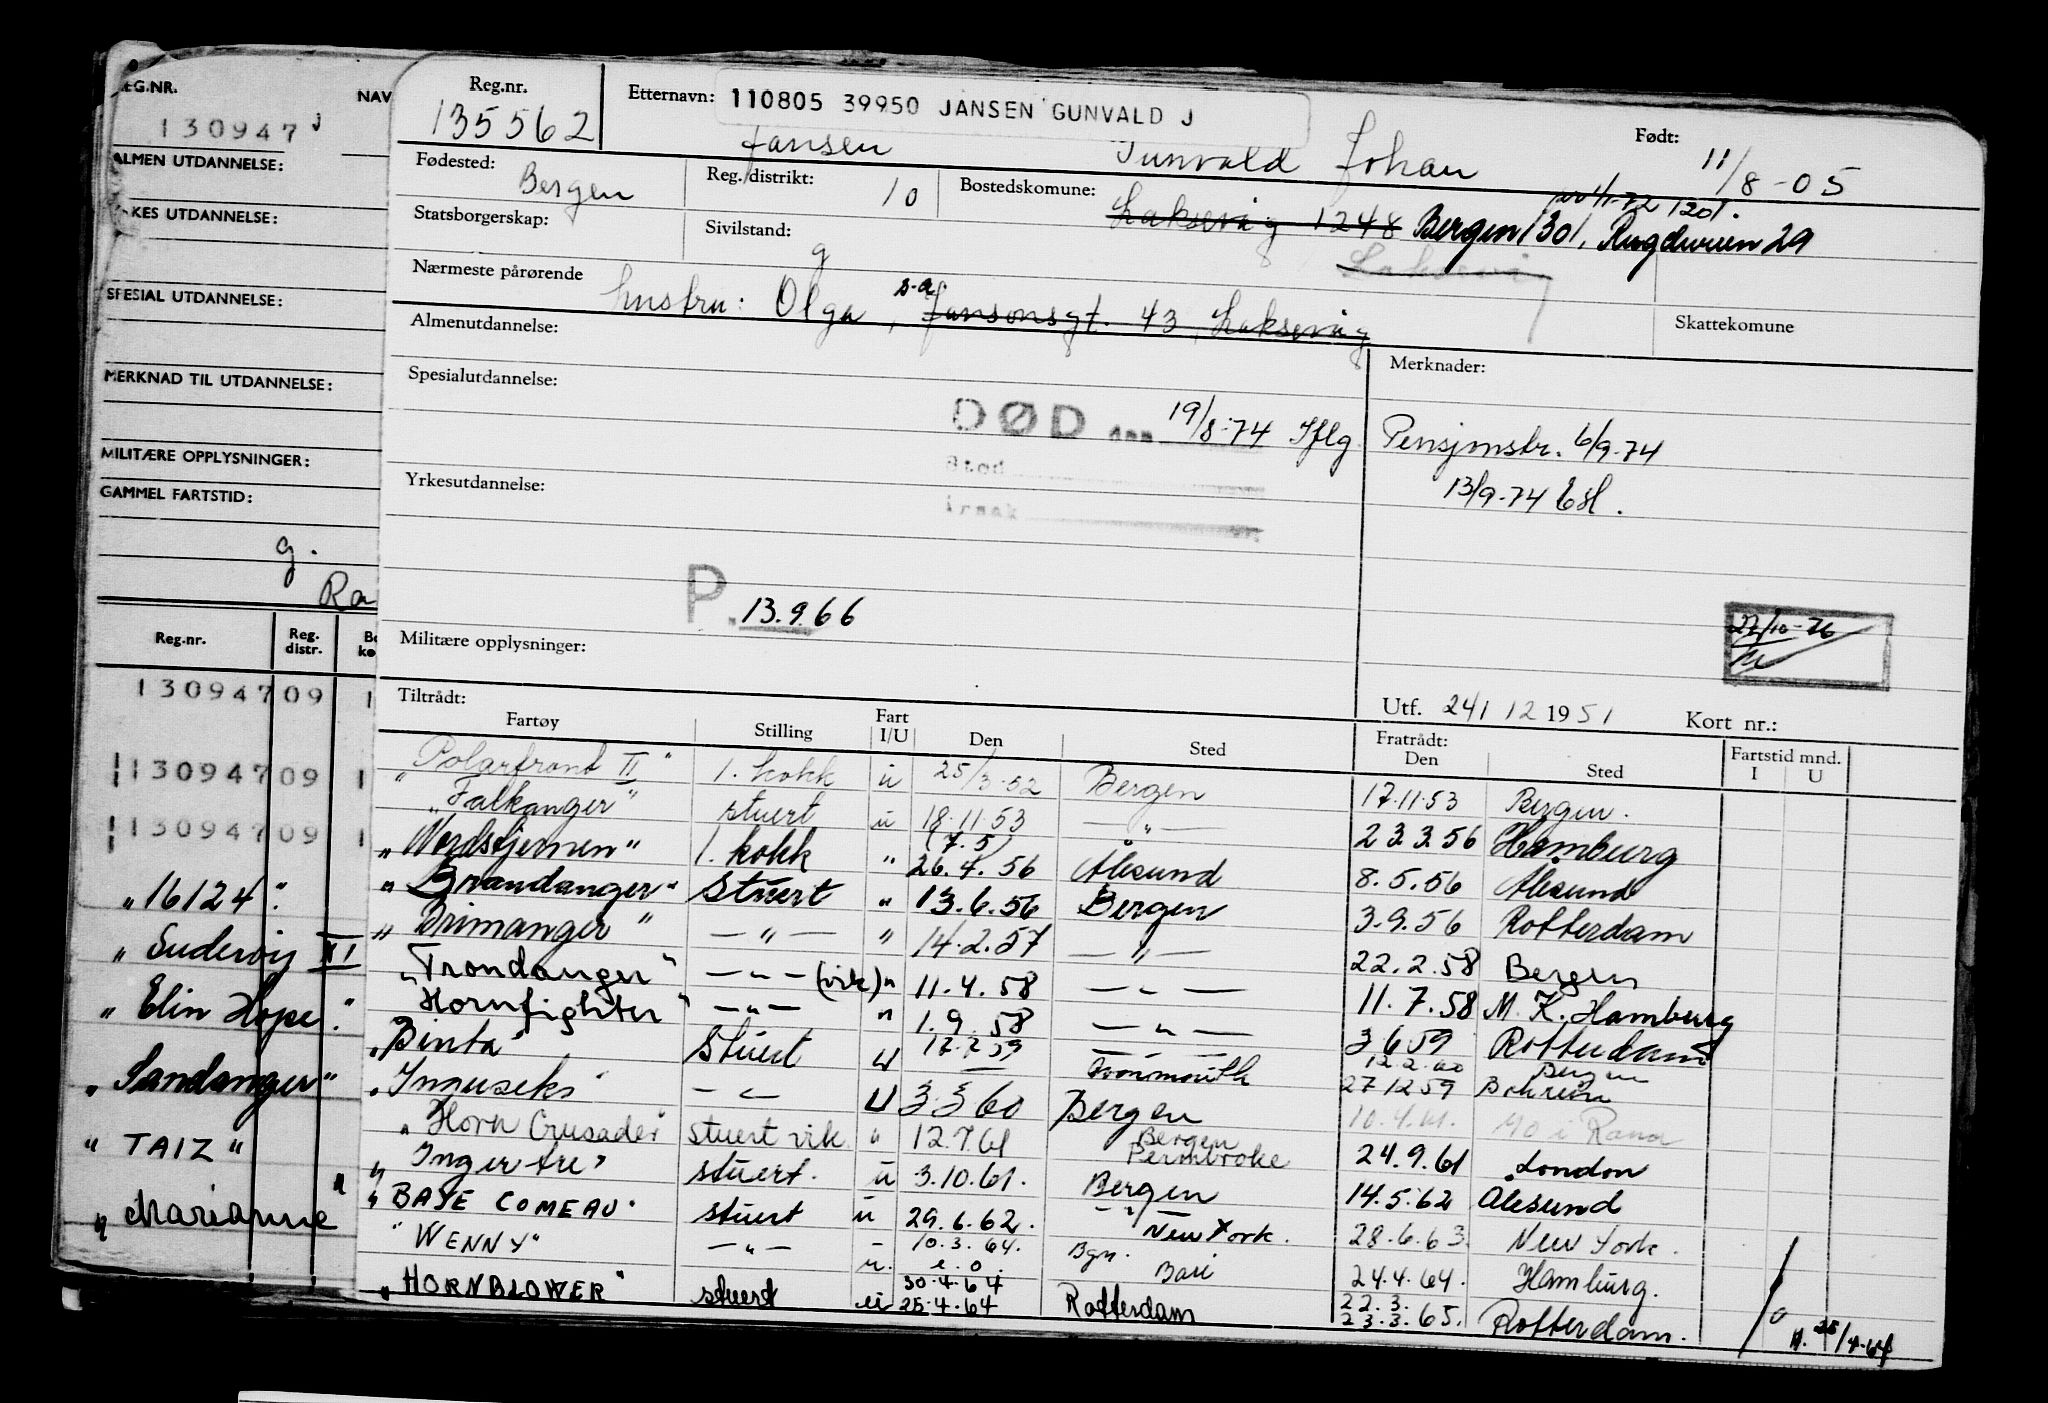 REG.NR. NAV
130947 J
ALMEN UTDANNELSE:
YRKES UTDANNELSE:
SPESIAL UTDANNELSE:
MERKNAD TIL UTDANNELSE:
MILITÆRE OPPLYSNINGER:
GAMMEL FARTSTID:
g.
Ra
Reg.nr. Reg. distr.
130947 09 1
130947 09 1
130947 09 1
"16124"
" Suderøy III
" Elin Hope "
" Sandanger"
" TAIZ "
" Marianne "
Reg.nr. 135562
Etternavn: 110805 39950 JANSEN GUNVALD J
Jansen Gunvald Johan
Født: 11/8-05
Fødested: Bergen
Reg. distrikt: 10
Bostedskomune: Laksevåg 1248 Bergen 1301,
1201.
Statsborgerskap:
Sivilstand: g
Nærmeste pårørende
hustru: Olga, s.a. Jansonsgt. 43, Laksevåg
Skattekomune
Almenutdannelse:
Merknader:
Spesialutdannelse:
DØD den 19/8-74 Iflg Pensjonstr. 6/9-74
Sted
Årsak
13/9-74
Yrkesutdannelse:
P. 13.9.66
27/10-76
Militære opplysninger:
Utf. 24/12 1951 Kort nr.:
Tiltrådt: Fratrådt: Fartstid mnd.
Fartøy Stilling Fart I/U Den Sted Den Sted I U
"Polarfront II" 1. kokk u 25/3-52 Bergen 17.11.53 Bergen.
"Falkanger" stuert u 18.11.53 — " — 23.3.56 Hamburg
"Nordstjernen" 1. kokk " 26.4.56 Ålesund 8.5.56 Ålesund
"Brandanger" Stuert " 13.6.56 Bergen 3.9.56 Rotterdam
"Brimanger" — " — " 14.2.57 — " — 22.2.58 Bergen
"Trondanger" — " — (vik) " 11.4.58 — " — 11.7.58 M.K. Hamburg
"Hornfighter" — " — " 1.9.58 — " — 3.6.59 Rotterdam
"Binta" Stuert U 27.12.59 Bahrein
12.2.60 Bergen
" — " — U 3.3.60 Bergen 10.4.61. Mo i Rana
"Horn Crusader" stuert vik. " 12.7.61 Bergen 24.9.61 London
"Ingertre" stuert. u 3.10.61. Bergen 14.5.62 Ålesund
"BAIE COMEAU" stuert u 29.6.62. New York. 28.6.63. New York.
"WENNY" — " — u. 10.3.64. Bgn. Bari 24.4.64. Hamburg.
"HORNBLOWER" stuert u 30.4.64 25.4.64 Rotterdam 22.3. 23.3.65. Rotterdam.
25/4-64